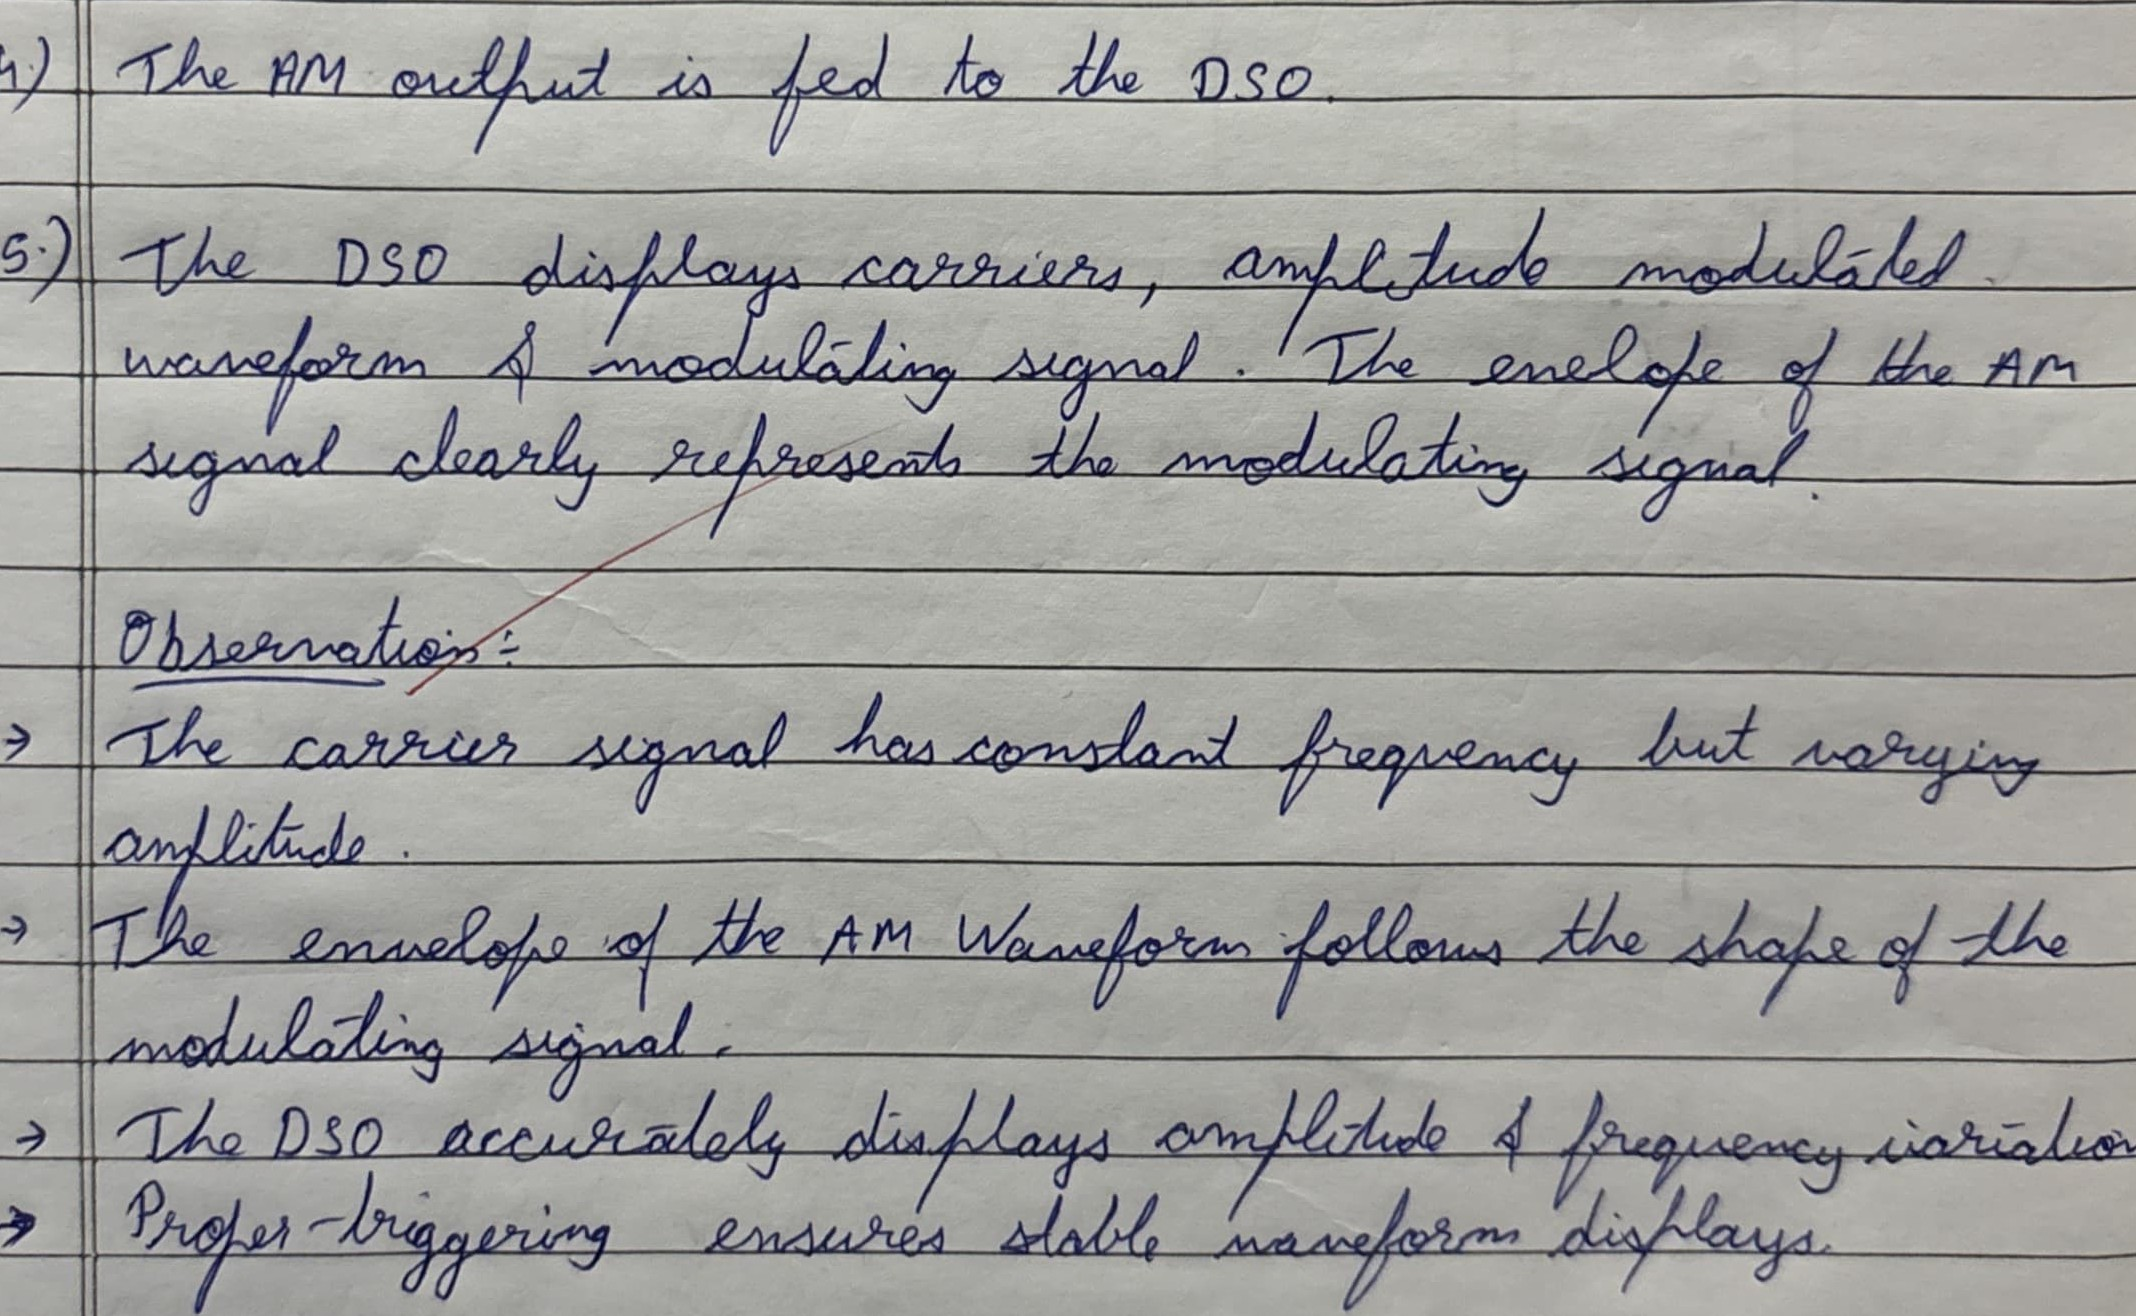 4.) The AM output is fed to the DSO.
5.) The DSO displays carriers, amplitude modulated
waveform & modulating signal. The enelope of the AM
signal clearly represents the modulating signal.
Observation:-
→ The carrier signal has constant frequency but varying
amplitude.
→ The envelope of the AM Waveform follows the shape of the
modulating signal.
→ The DSO accurately displays amplitude & frequency variation
→ Proper triggering ensures stable waveform displays.